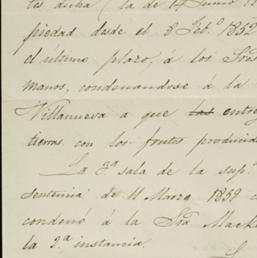 tes dicha (la de 14 Junio 18
piedad desde el 8 Feb.o 1852
el último plazo, á los Sres
manos, condenandose á la
Villanueva a que las entre
tierras con los frutos producid
La 3.a sala de la sup.
sentencia de 11 Marzo 1859 c
condenó á la Sra Mack
la 2.a instancia.